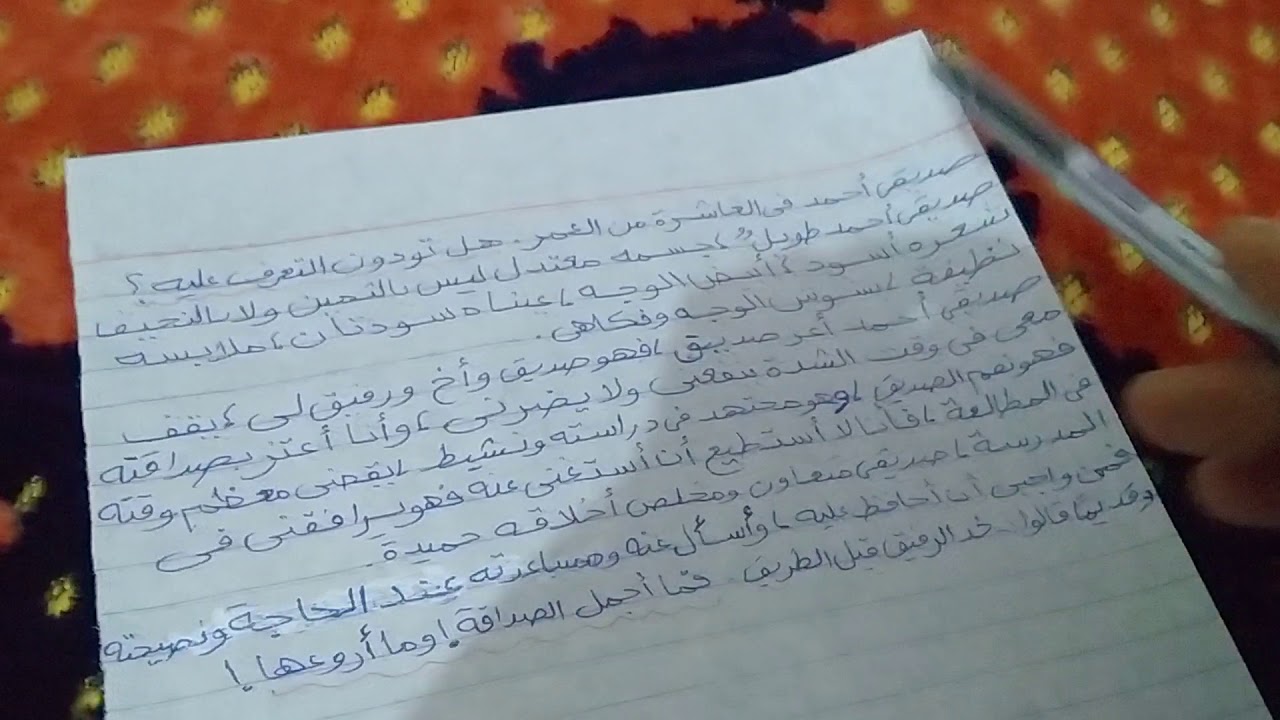 صديقي أحمد في العاشرة من العمر. هل تودون التعرف عليه ؟
صديقي أحمد طويل، جسمه معتدل ليس بالثمين ولا بالنحيف
شعره أسود، أبيض الوجه، عيناه سودتان، ملابسه
نظيفة، بسوس الوجه وفكاهي.
صديقي أحمد أعز صديق، فهو صديق وأخ ورفيق لي، يقف
معي في وقت الشدة ينفعني ولا يضرني، وأنا أعتز بصداقته
فهو نعم الصديق، وهو مجتهد في دراسته ونشيط، يقضي معظم وقته
في المطالعة، فأنا لا أستطيع أن أستغني عنه فهو يرافقني في
المدرسة، صديقي متعاون ومخلص أخلاقه حميدة.
فمن واجبي أن أحافظ عليه، وأسأل عنه ومساعدته عند الحاجة ونصيحته
وقديما قالوا.. خد الرفيق قبل الطريق فما أجمل الصداقة! وما أروعها!